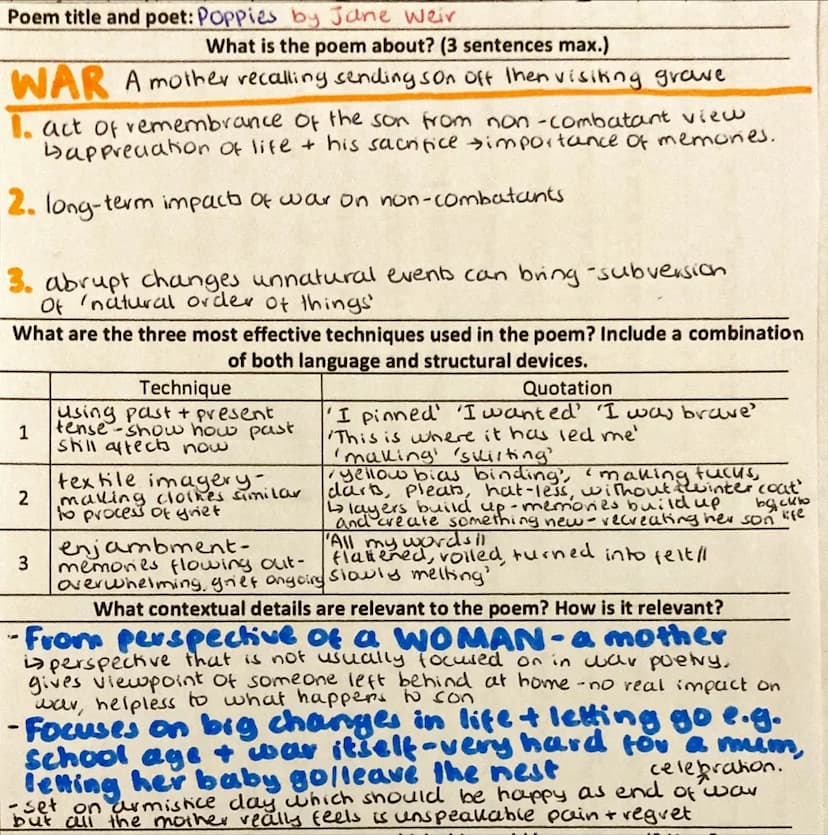 Poem title and poet: Poppies by Jane Weir
What is the poem about? (3 sentences max.)
WAR A mother recalling sending son off then visiting grave
1. act of remembrance of the son from non-combatant view
↳appreciation of life + his sacrifice →importance of memories.
2. long-term impacts of war on non-combatants
3. abrupt changes unnatural events can bring -subversion
of 'natural order of things'
What are the three most effective techniques used in the poem? Include a combination
of both language and structural devices.
Technique
Quotation
1
using past + present
tense-show how past
still affects now
'I pinned' 'I wanted' 'I was brave'
'This is where it has led me'
'making' 'skirting'
2
textile imagery-
making clothes similar
to process of grief
'yellow bias binding', 'making tucks,
darts, pleats, hat-less, without a winter coat'
↳layers build up-memories build up back to
and create something new-recreating her son life
3
enjambment-
memories flowing out-
overwhelming, grief ongoing
'All my words//
flattened, rolled, turned into felt//
slowly melting'
What contextual details are relevant to the poem? How is it relevant?
- From perspective of a WOMAN - a mother
↳perspective that is not usually focused on in war poetry.
gives viewpoint of someone left behind at home -no real impact on
war, helpless to what happens to son
- Focuses on big changes in life + letting go e.g.
school age + war itself-very hard for a mum,
letting her baby go/leave the nest
-set on armistice day which should be happy as end of war celebration.
but all the mother really feels is unspeakable pain + regret